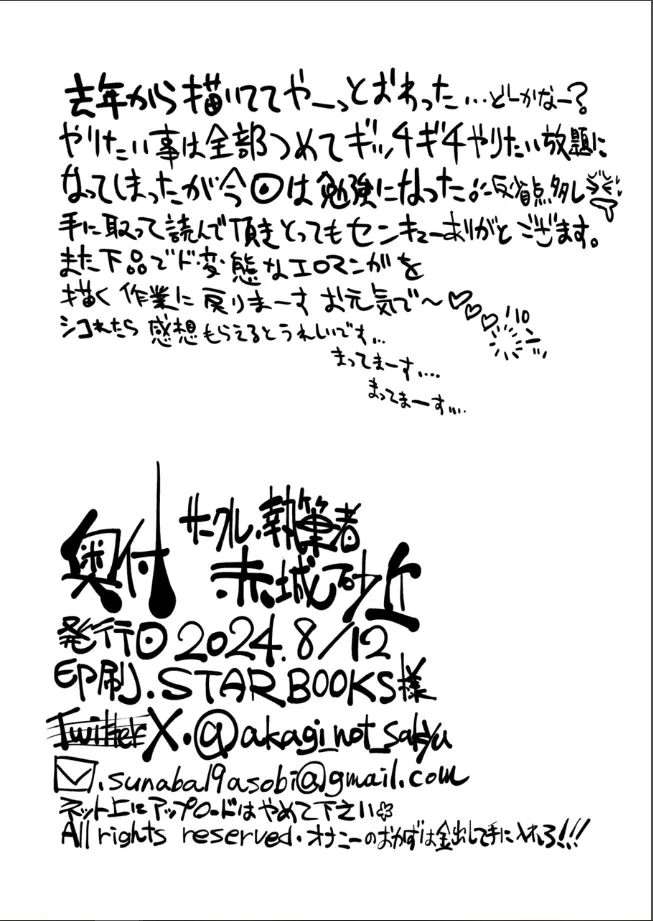 去年から描いててやーっとおわった…どしかなー?
やりたい事は全部つめてギッチギチやりたい放題に
なってしまったが今回は勉強になった。反省点多し
手に取って読んで頂きとってもセンキューありがとうございます。
また下品でド変態なエロマンガを
描く作業に戻りまーすお元気で〜♡♡♡
シコれたら感想もらえるとうれしいです…
まってまーす…
まってまーす…
奥付
サークル.執筆者
赤城砂丘
発行日2024.8/12
印刷.STARBOOKS様
Twitter X.@akagi_not_sakyu
.sunaba19asobi@gmail.com
ネット上にアップロードはやめて下さい
All rights reserved.オナニーのおかずは金出して手に入れろ!!!